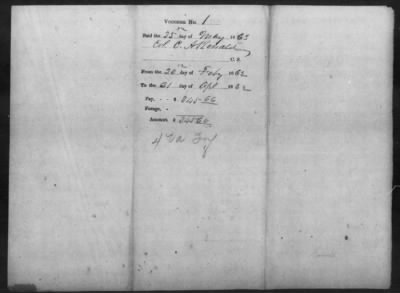 Voucher No. 1
Paid the 25 day of May 1863
Col. C. A. Ronald
C. S.
From the 20 day of Feby 1862
To the 21 day of Apl 1862
Pay, - - $ 345 66
Forage, -
Amount, $ 345 66
4 Va Inf